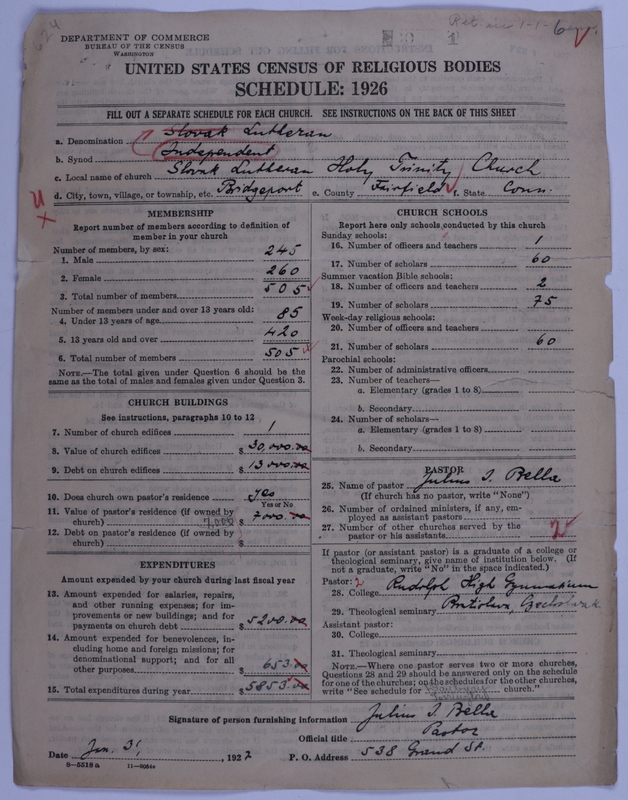 624
Ret. in 1-1-6
DEPARTMENT OF COMMERCE
BUREAU OF THE CENSUS
WASHINGTON
UNITED STATES CENSUS OF RELIGIOUS BODIES
SCHEDULE: 1926
FILL OUT A SEPARATE SCHEDULE FOR EACH CHURCH. SEE INSTRUCTIONS ON THE BACK OF THIS SHEET
a. Denomination Slovak Lutheran
b. Synod Independent
c. Local name of church Slovak Lutheran Holy Trinity Church
d. City, town, village, or township, etc. Bridgeport e. County Fairfield f. State Conn.
MEMBERSHIP
Report number of members according to definition of
member in your church
Number of members, by sex:
1. Male 245
2. Female 260
3. Total number of members 505
Number of members under and over 13 years old:
4. Under 13 years of age 85
5. 13 years old and over 420
6. Total number of members 505
NOTE.—The total given under Question 6 should be
the same as the total of males and females given under Question 3.
CHURCH BUILDINGS
See instructions, paragraphs 10 to 12
7. Number of church edifices 1
8. Value of church edifices $30,000.00
9. Debt on church edifices $13000.00
10. Does church own pastor's residence yes
Yes or No
11. Value of pastor's residence (if owned by
church) 7,000 $7000.00
12. Debt on pastor's residence (if owned by
church) $
EXPENDITURES
Amount expended by your church during last fiscal year
13. Amount expended for salaries, repairs,
and other running expenses; for im-
provements or new buildings; and for
payments on church debt $5200.00
14. Amount expended for benevolences, in-
cluding home and foreign missions; for
denominational support; and for all
other purposes $653.00
15. Total expenditures during year $5853.00
CHURCH SCHOOLS
Report here only schools conducted by this church
Sunday schools:
16. Number of officers and teachers 1
17. Number of scholars 60
Summer vacation Bible schools:
18. Number of officers and teachers 2
19. Number of scholars 75
Week-day religious schools:
20. Number of officers and teachers
21. Number of scholars 60
Parochial schools:
22. Number of administrative officers
23. Number of teachers—
a. Elementary (grades 1 to 8)
b. Secondary
24. Number of scholars—
a. Elementary (grades 1 to 8)
b. Secondary
PASTOR
25. Name of pastor Julius I. Bella
(If church has no pastor, write "None")
26. Number of ordained ministers, if any, em-
ployed as assistant pastors
27. Number of other churches served by the
pastor or his assistants
If pastor (or assistant pastor) is a graduate of a college or
theological seminary, give name of institution below. (If
not a graduate, write "No" in the space indicated.)
Pastor:
28. College Rudolph High Gymnasium
29. Theological seminary Bratislava, Czechoslovak
Assistant pastor:
30. College
31. Theological seminary
NOTE.—Where one pastor serves two or more churches,
Questions 28 and 29 should be answered only on the schedule
for one of the churches; on the schedules for the other churches,
write "See schedule for church."
Signature of person furnishing information Julius I. Bella
Official title Pastor
Date Jan. 31, 1927 P. O. Address 538 Grand St.
8—5518 a 11—9054